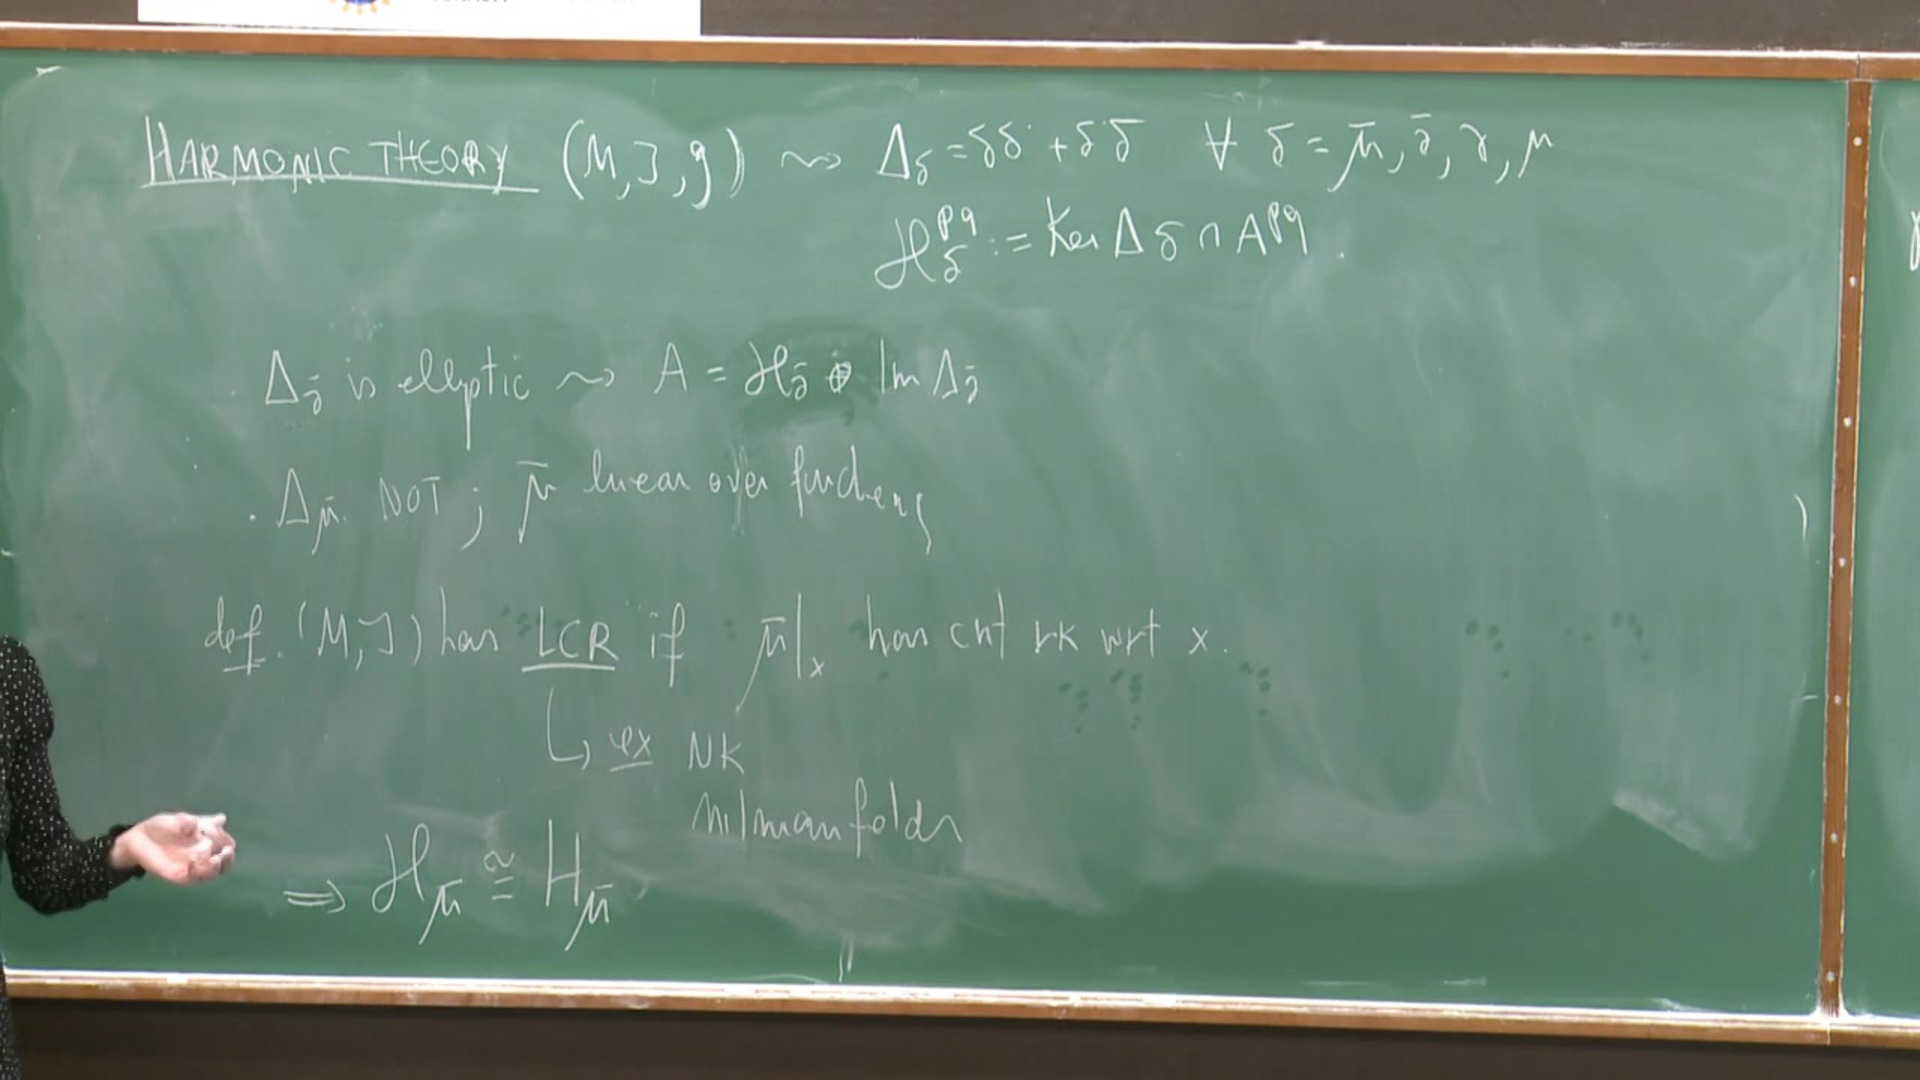 HARMONIC THEORY (M, J, g) ⇝ Δ_δ = δδ* + δ*δ ∀ δ = μ̄, ∂̄, ∂, μ
ℋ_δ^{pq} := Ker Δ_δ ∩ A^{pq}.
· Δ_∂̄ is elliptic ⇝ A = ℋ_∂̄ ⊕ Im Δ_∂̄
· Δ_μ̄ NOT; μ̄ linear over functions
def. (M, J) has LCR if μ̄|_x has cnt rk wrt x.
↳ ex NK
Nilmanifolds
⇒ ℋ_μ̄ ≅ H_μ̄